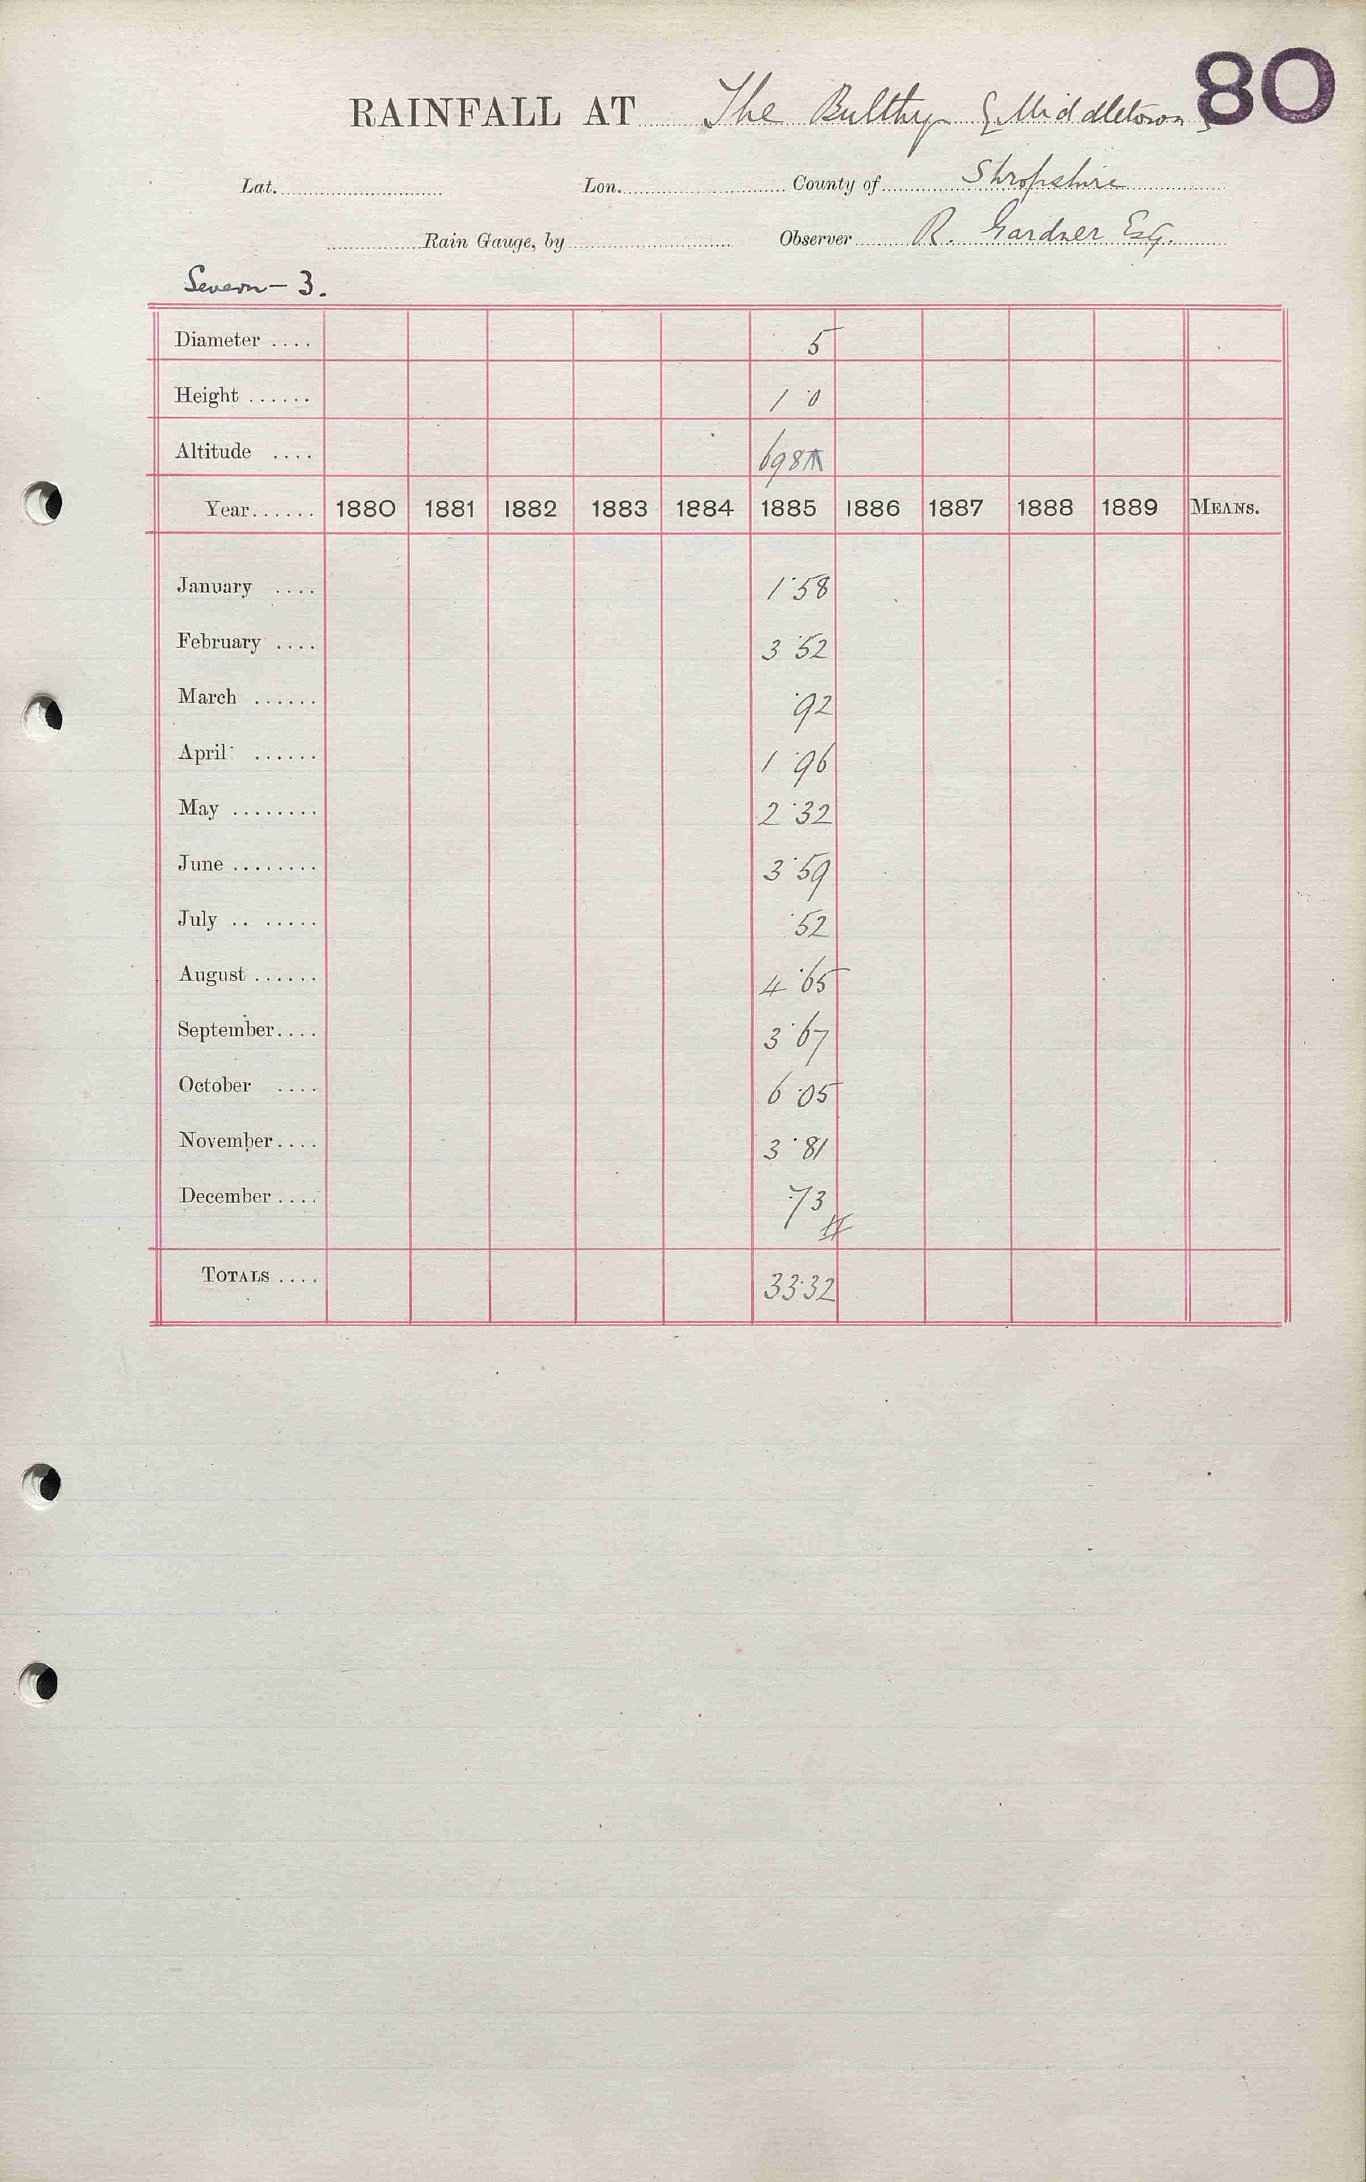 80
RAINFALL AT The Bulthy {Middletown}
Lat. Lon. County of Shropshire
Rain Gauge, by Observer R. Gardner Esq.
Severn - 3.
Diameter .... 5
Height ...... 1 0
Altitude .... 698
Year...... 1880 1881 1882 1883 1884 1885 1886 1887 1888 1889 MEANS.
January .... 1·58
February .... 3·52
March ...... ·92
April ...... 1·96
May ........ 2·32
June ........ 3·59
July .. ...... ·52
August ...... 4·65
September.... 3·67
October .... 6·05
November.... 3·81
December .... ·73
TOTALS .... 33·32